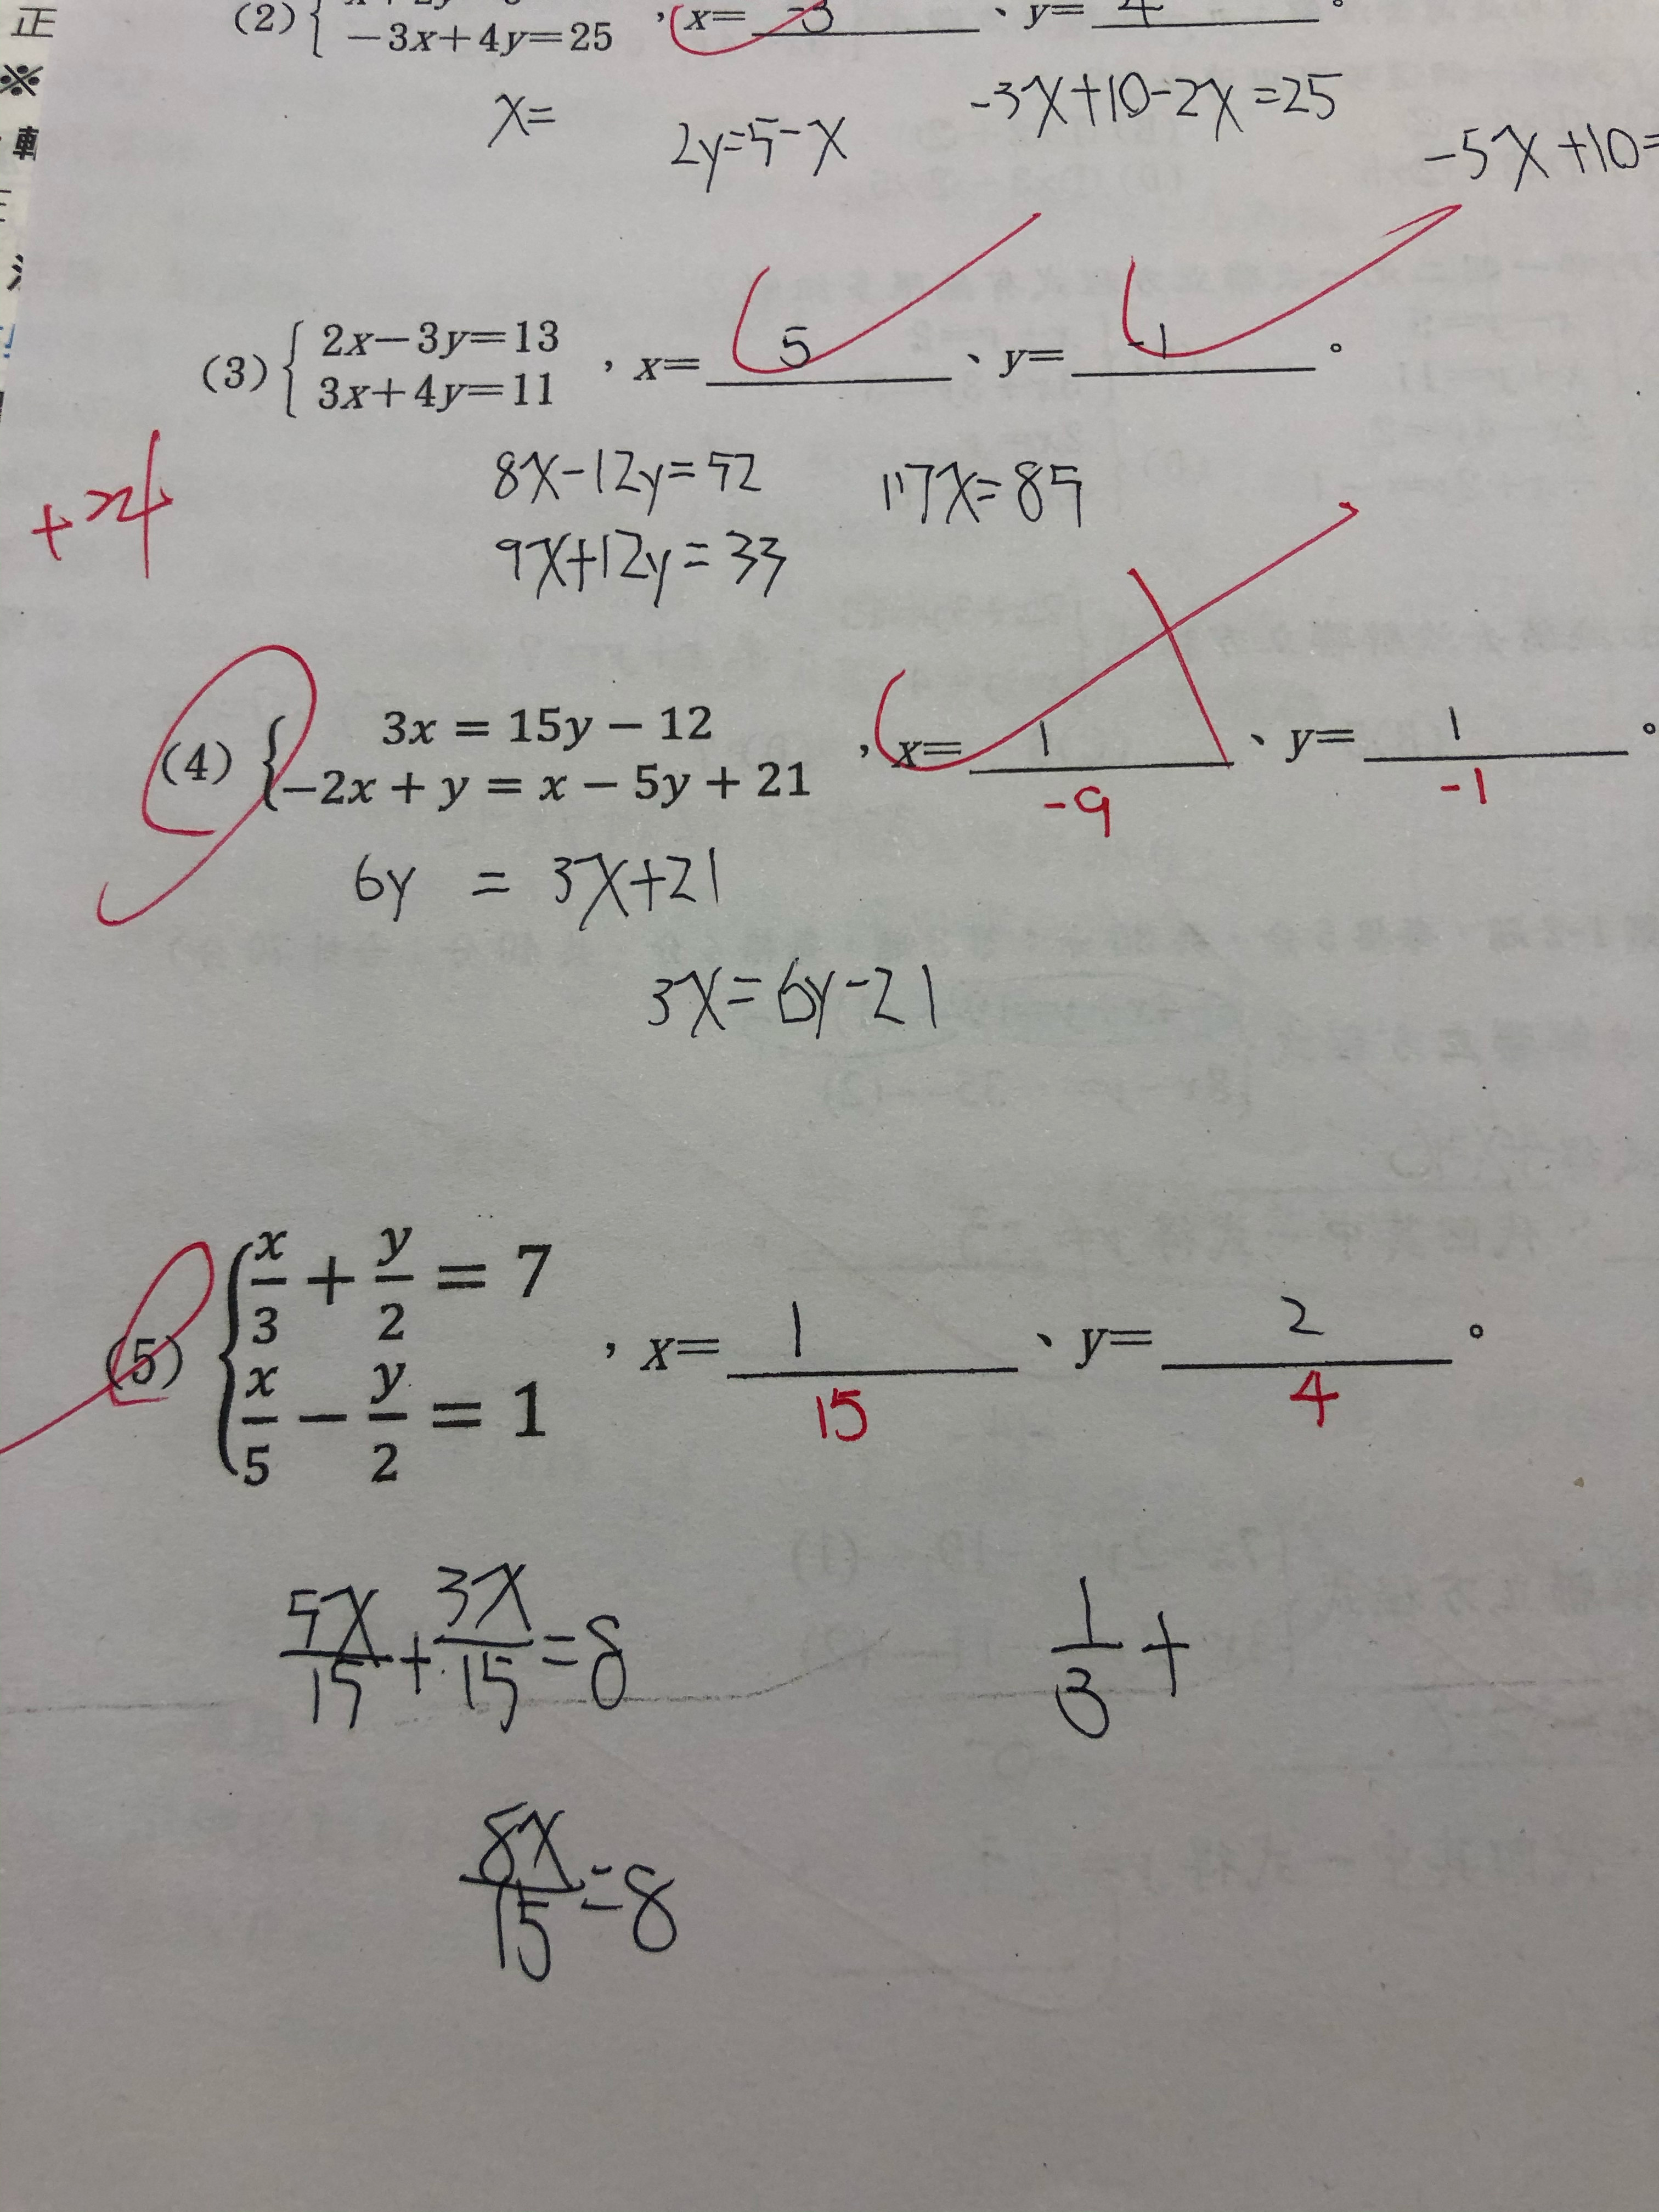 正
※
(2) { −3x+4y=25 ，x= -3 、y= 4 。
x=
2y=5-x
-3x+10-2x=25
-5x+10=
(3) { 2x−3y=13
3x+4y=11 ，x= 5 、y= -1 。
8x-12y=52
9x+12y=33
17x=85
+24
(4) { 3x = 15y − 12
−2x + y = x − 5y + 21 ，x= 1 、y= 1 。
-9
-1
6y = 3x+21
3x=6y-21
(5) { x/3 + y/2 = 7
x/5 − y/2 = 1 ，x= 1 、y= 2 。
15
4
5x/15 + 3x/15 = 8
1/3 +
8x/15 = 8